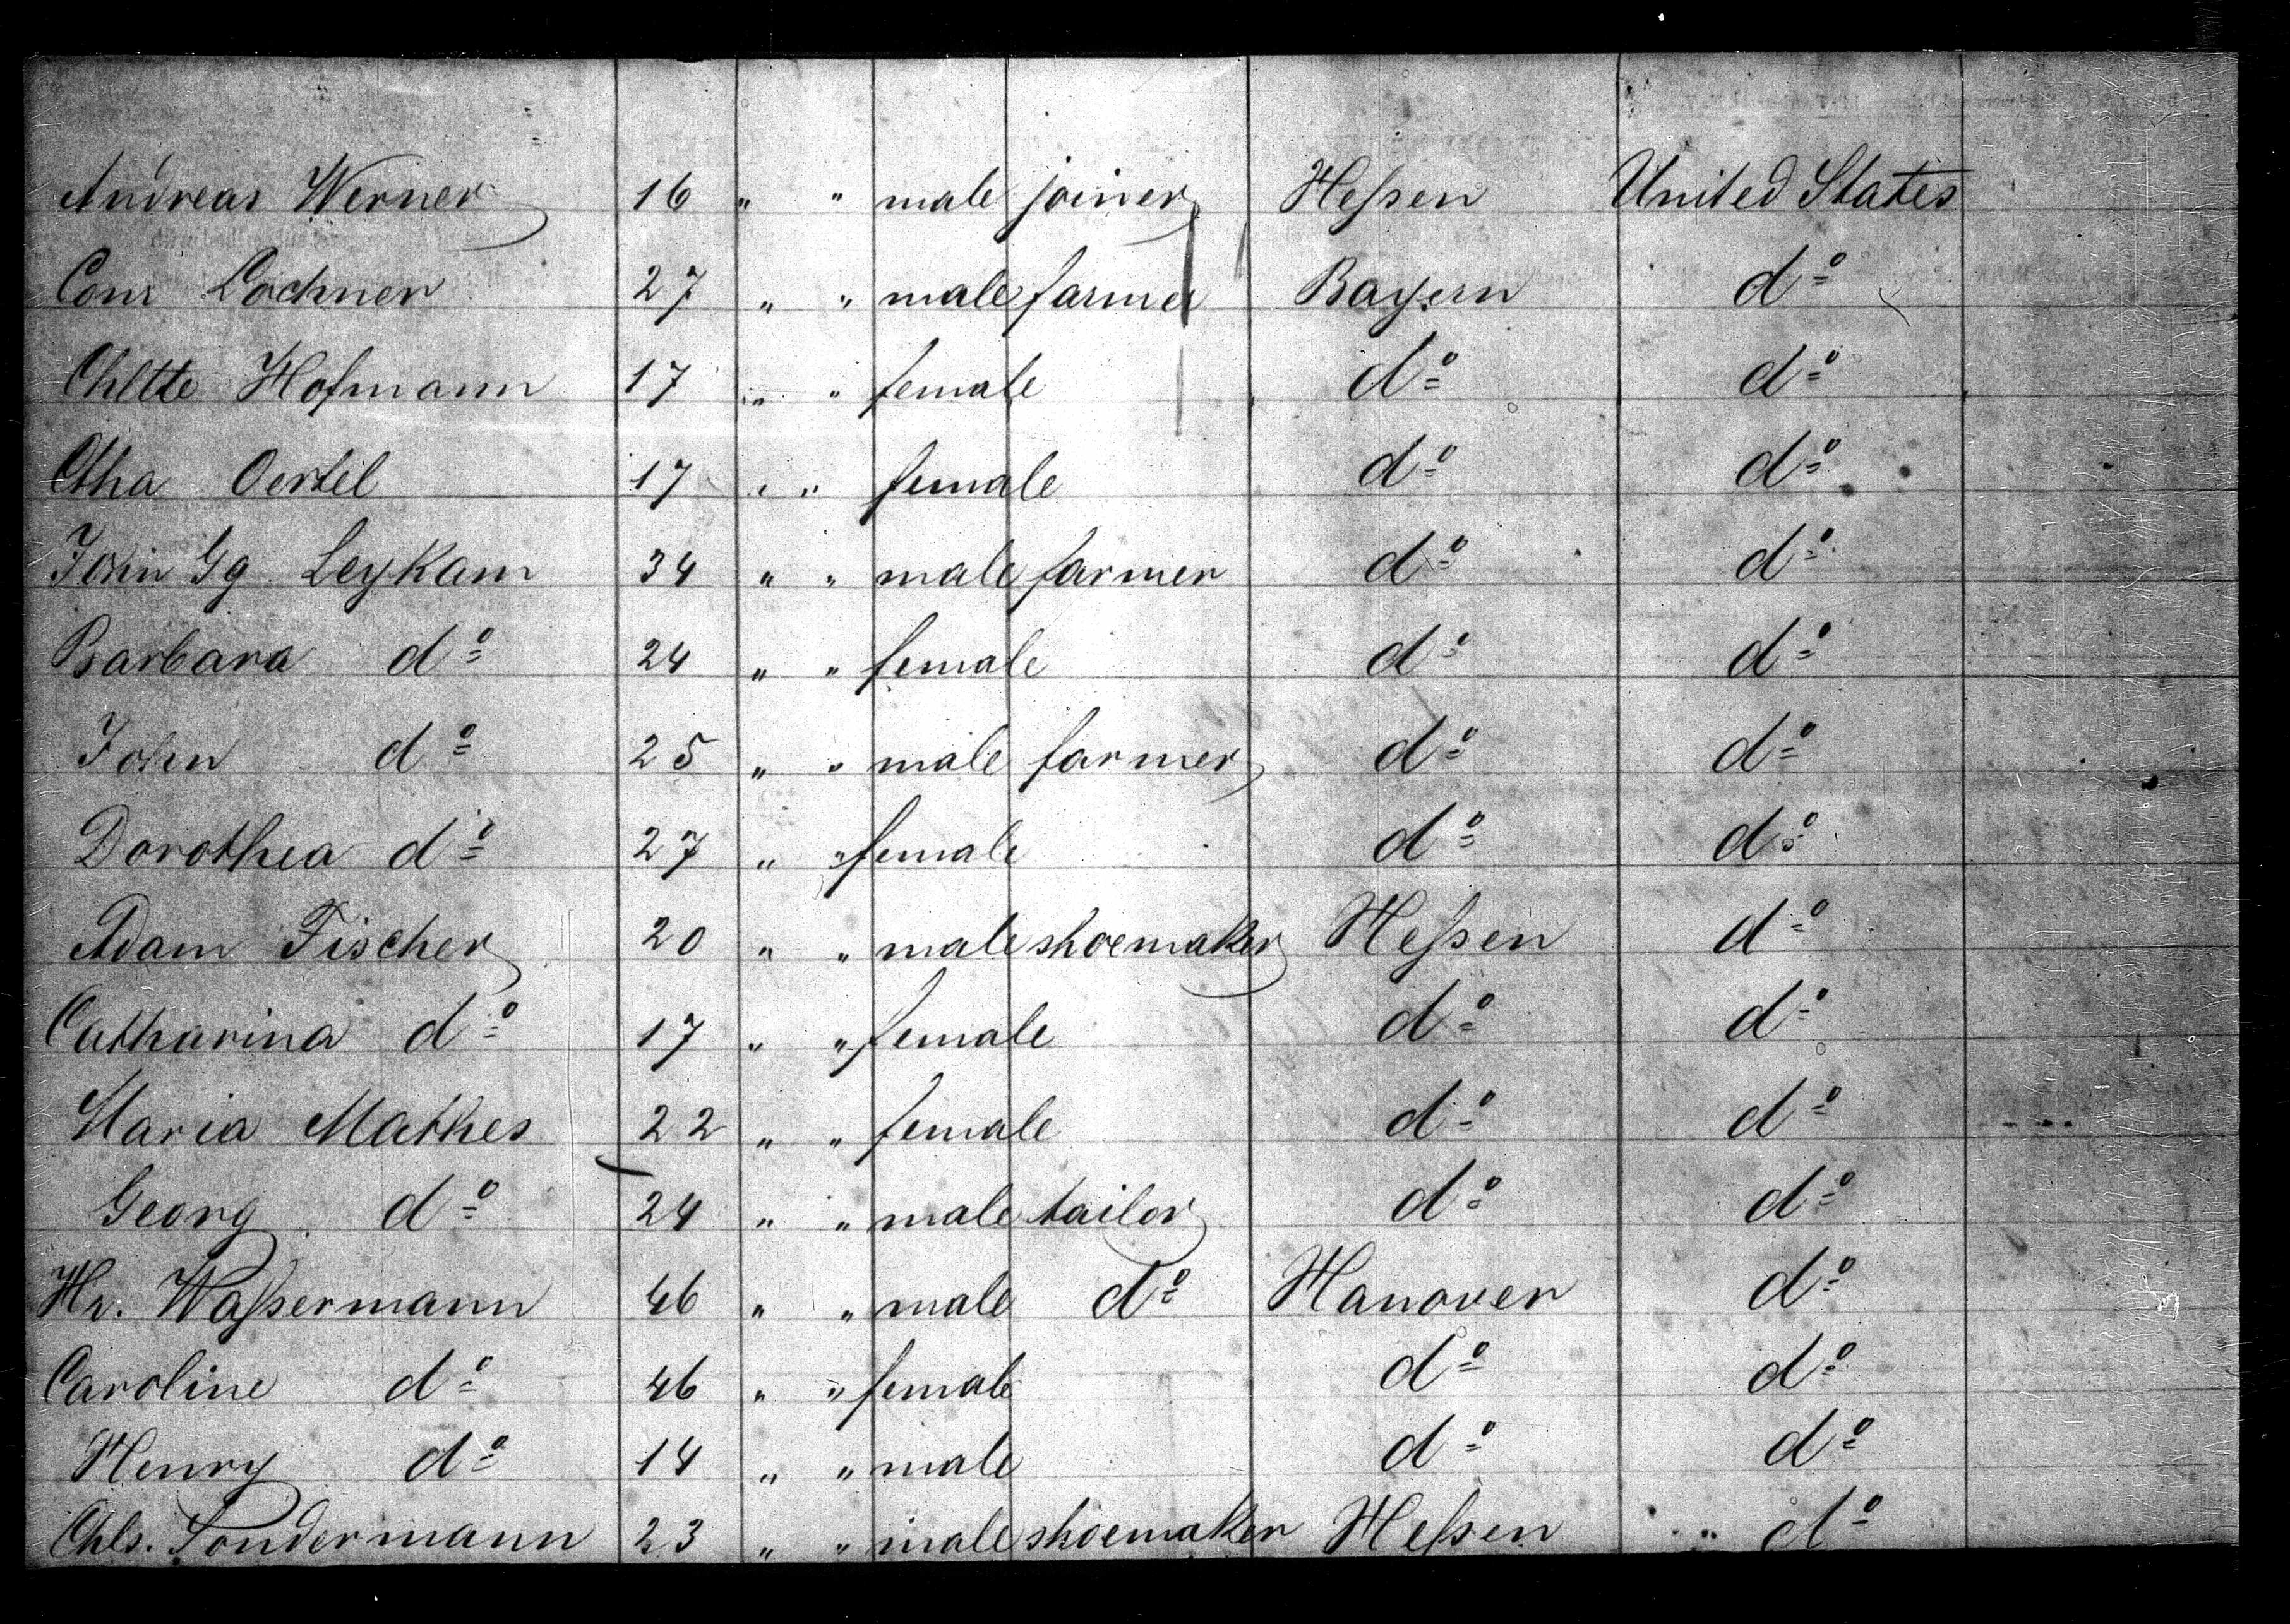 Andreas Werner 16 " " male joiner Hessen United States
Conr Lochner 27 " " male farmer Bayern do
Chltte Hofmann 17 " " female do do
Ctha Oertel 17 " " female do do
John Gg Leykam 34 " " male farmer do do
Barbara do 24 " " female do do
John do 25 " " male farmer do do
Dorothea do 27 " " female do do
Adam Fischer 20 " " male shoemaker Hessen do
Catharina do 17 " " female do do
Maria Mathes 22 " " female do do
Georg do 24 " " male tailor do do
Hr. Wassermann 46 " " male do Hanover do
Caroline do 46 " " female do do
Henry do 14 " " male do do
Chls. Sondermann 23 " " male shoemaker Hessen do